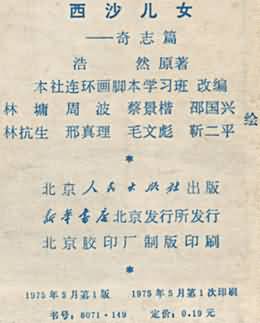 西沙儿女
——奇志篇
浩然 原著
本社连环画脚本学习班 改编
林墉 周波 蔡景楷 邵国兴
林抗生 邢真理 毛文彪 靳二平
绘
*
北京人民出版社出版
新华书店北京发行所发行
北京胶印厂制版印刷
*
1975年5月第1版 1975年5月第1次印刷
书号：8071·149 定价：0.19元